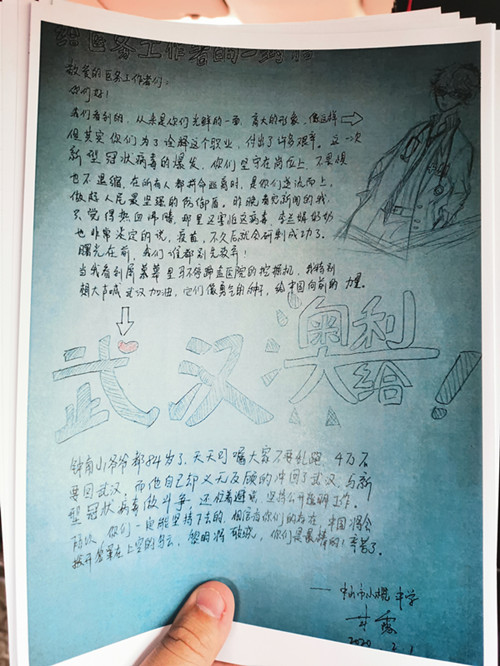 给医务工作者的一封信
敬爱的医务工作者们：
你们好！
我们看到的，从来是你们光鲜的一面，高大的形象，像这样
但其实你们为了诠释这个职业，付出了许多艰辛。这一次
新型冠状病毒的爆发，你们坚守在岗位上，不畏惧
也不退缩，在所有人都拼命躲着时，是你们逆流而上，
做好人民最坚强的防御盾。昨晚看完新闻的我
只觉得热血沸腾，那里还害怕这病毒，李兰娟奶奶
也非常淡定的说，疫苗，不久后就会研制成功了。
曙光在前，我们谁都别先放弃！
当我看到屏幕里马不停蹄造医院的挖掘机，我特别
想大声喊武汉加油，它们像勇气的，给中国向前的力量。
武汉 奥利给！
钟南山爷爷都84岁了，天天叮嘱大家不要乱跑，千万不
要回武汉，而他自己却义无反顾的冲回了武汉，与新
型冠状病毒做斗争，还冒着，坚持公开透明工作。
所以，你们一定能坚持下去的，相信有你们的存在，中国将会
拨开笼罩在上空的乌云，黎明将，你们是最棒的！辛苦了。
——中山市小榄中学
2020.2.1